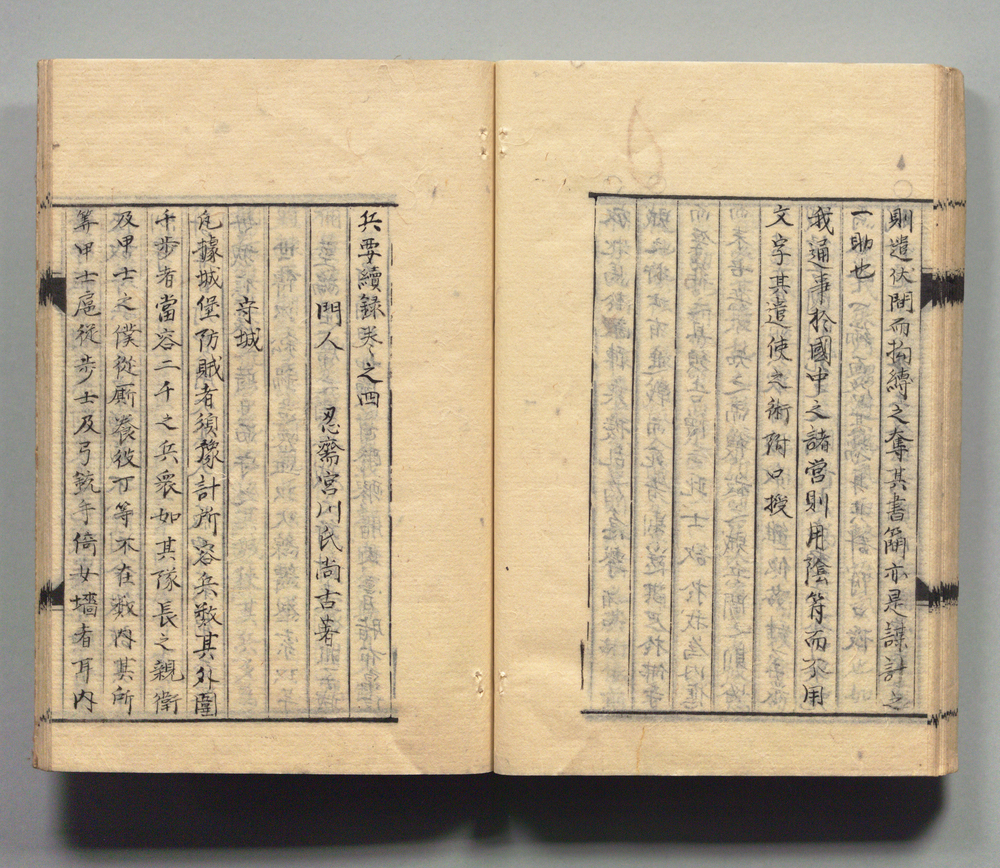 則遣伏間而搦縛之奪其書簡亦是謀計之
一助也
我通事於國中之諸営則用陰符而不用
文字其遣使之術附口授
兵要續録卷之四
門人 忍齋宮川氏尚古著
守城
凢據城堡防賊者須豫計所容兵數其外圍
千步者當容二千之兵衆如其隊長之親衛
及甲士之僕從厮養役丁等不在數内其所
筭甲士扈從步士及弓銃手倚女墻者耳内